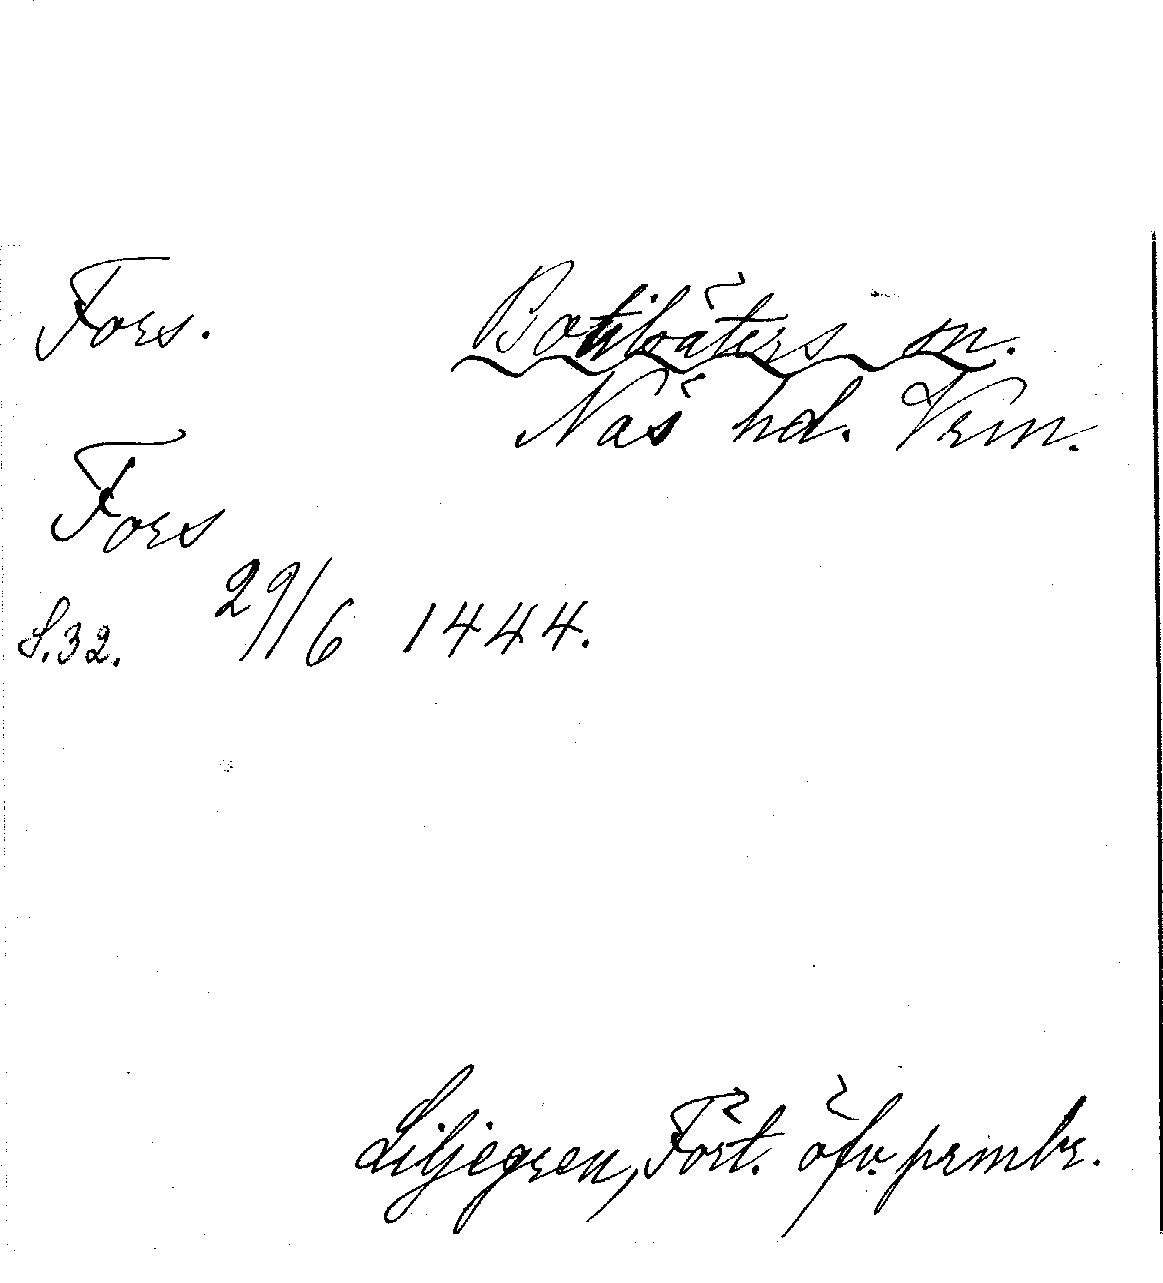 Fors. Botilsäters sn.
Näs hd. Vrm.
Fors
S.32. 29/6 1444.
Liljegren, Fört. öfv. prmbr.